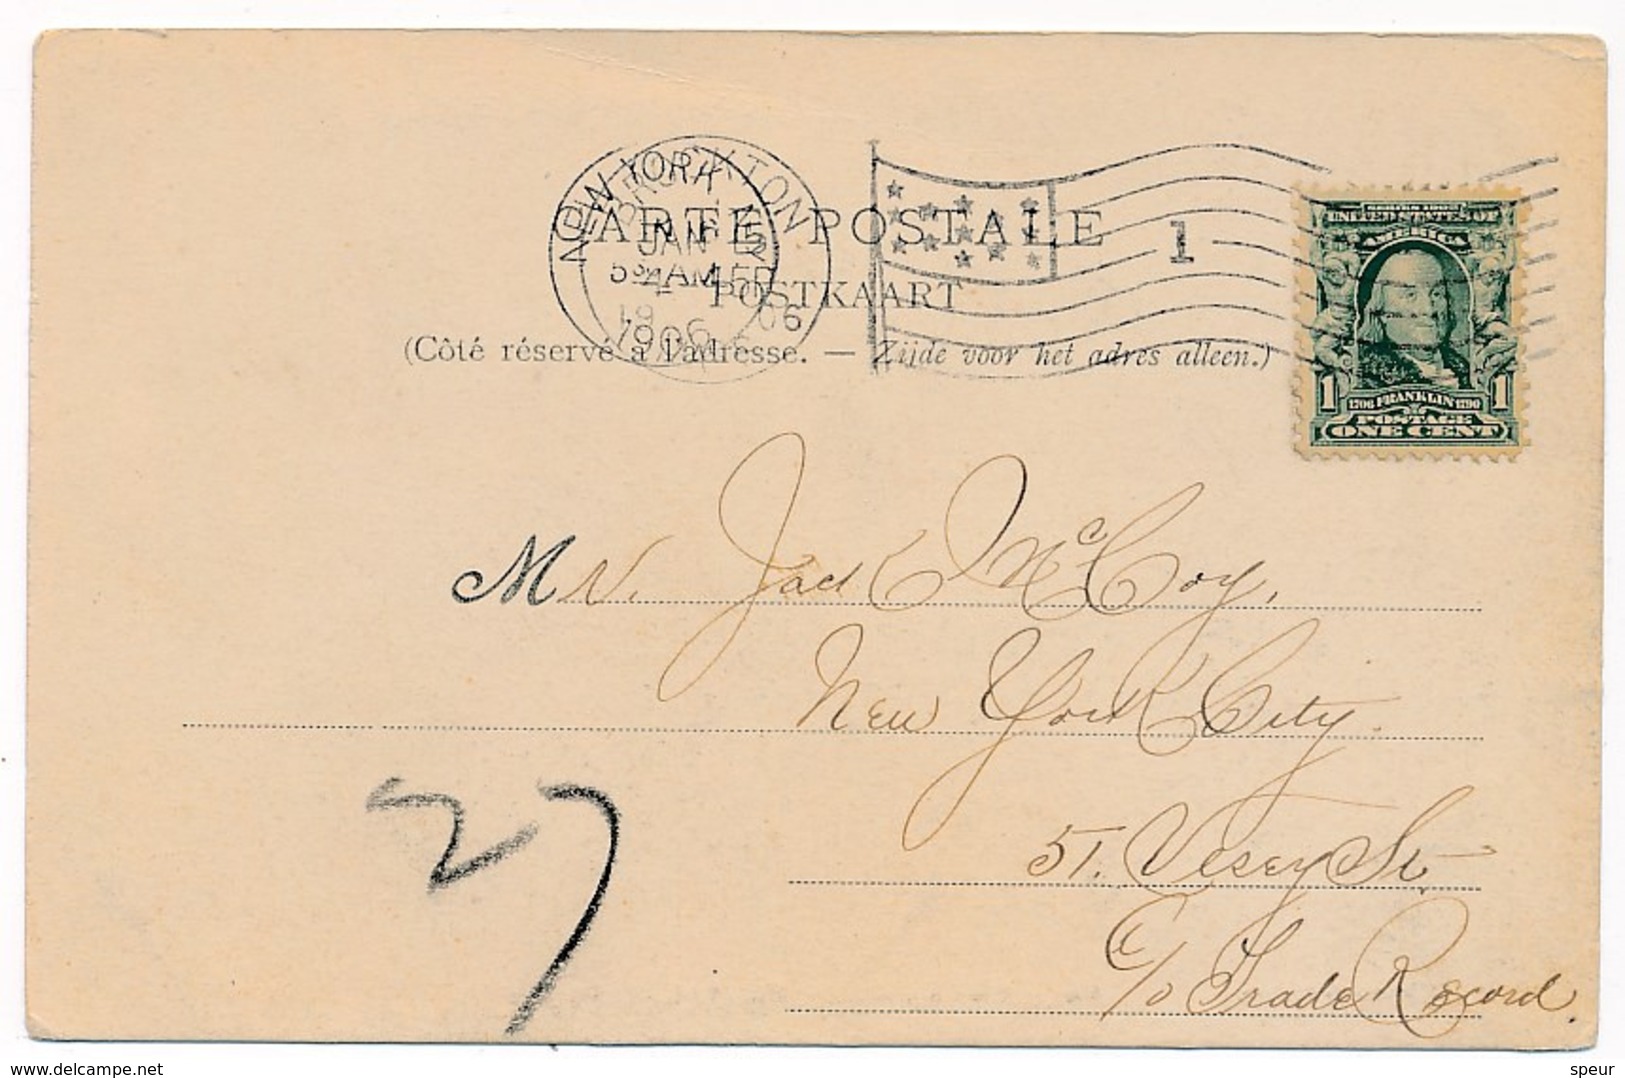 NEW YORK
BROCKTON
JAN 15
5 30 AM
1906
19 06
CARTE POSTALE
1
POSTKAART
(Côté réservé à l'adresse. — Zijde voor het adres alleen.)
UNITED STATES OF
AMERICA
1 1
1706 FRANKLIN 1790
POSTAGE
ONE CENT
Mr. Jack McCoy,
New York City.
51. Vesey St.
c/o Trade Record.
27
delcampe.net
speur